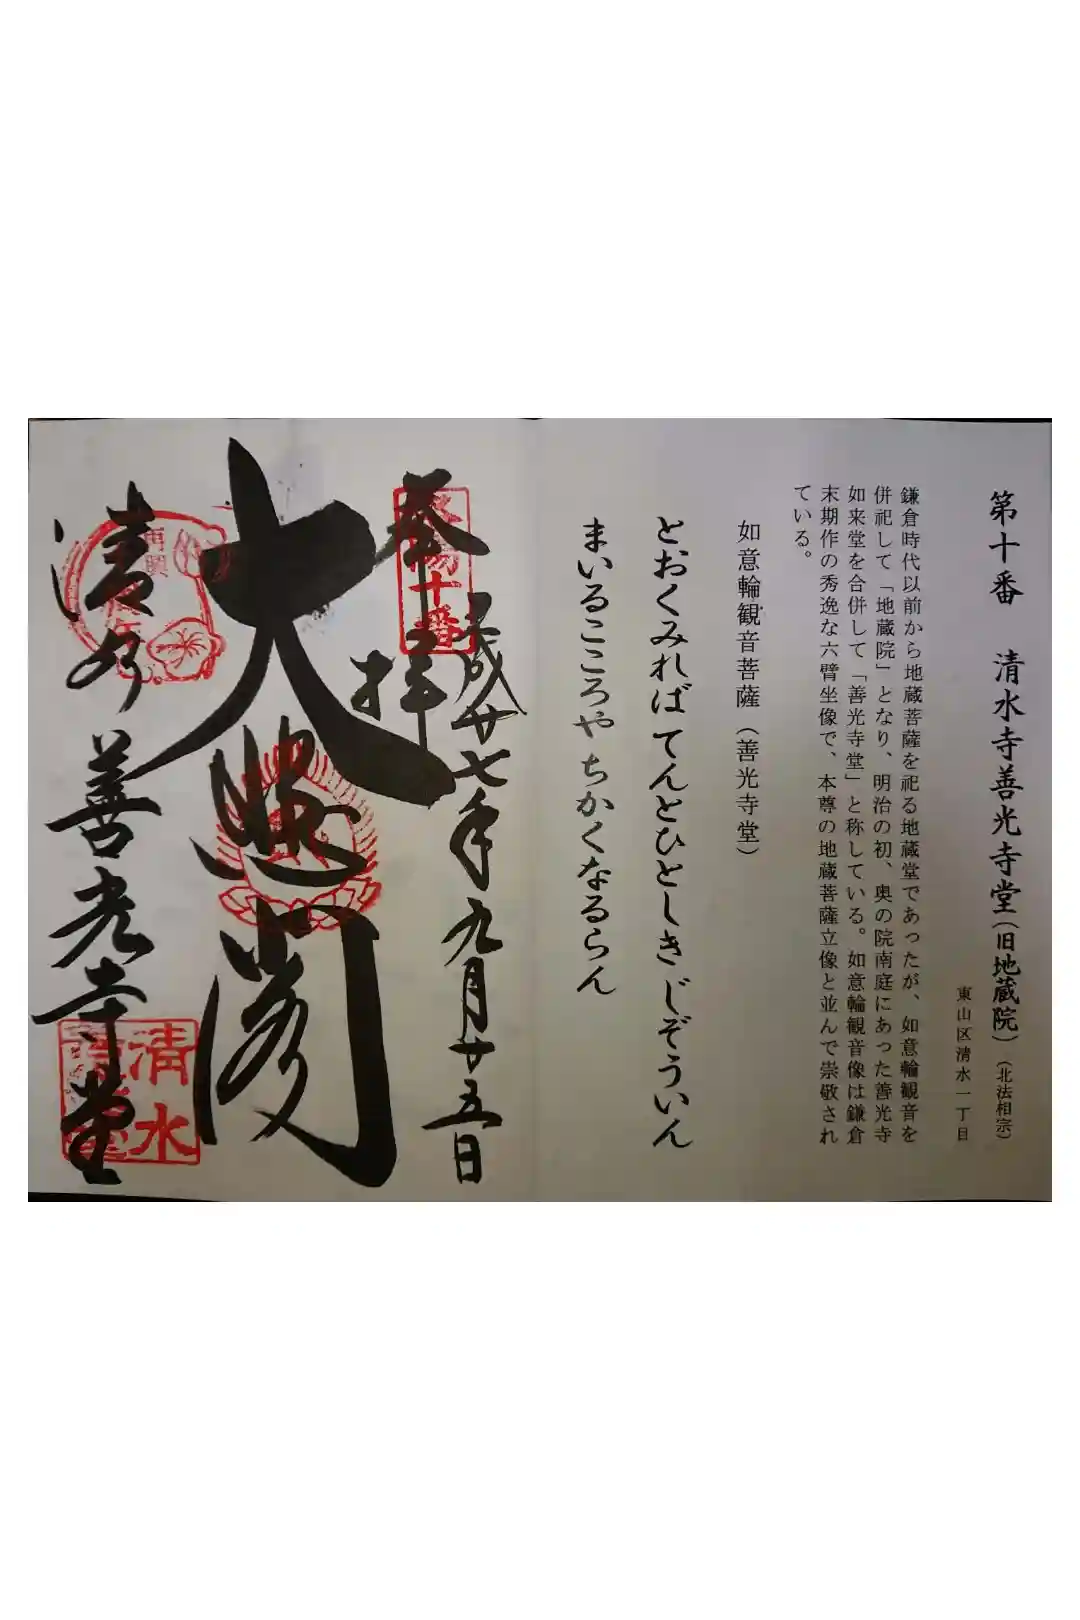 第十番 清水寺善光寺堂(旧地蔵院)(北法相宗)
東山区清水一丁目
鎌倉時代以前から地蔵菩薩を祀る地蔵堂であったが、如意輪観音を
併祀して「地蔵院」となり、明治の初、奥の院南庭にあった善光寺
如来堂を合併して「善光寺堂」と称している。如意輪観音像は鎌倉
末期作の秀逸な六臂坐像で、本尊の地蔵菩薩立像と並んで崇敬され
ている。
如意輪観音菩薩(善光寺堂)
とおくみれば てんとひとしき じぞういん
まいるこころや ちかくなるらん
平成廿七年 九月廿五日
奉拝
洛陽十番
大悲閣
清水 善光寺堂
再興
清水